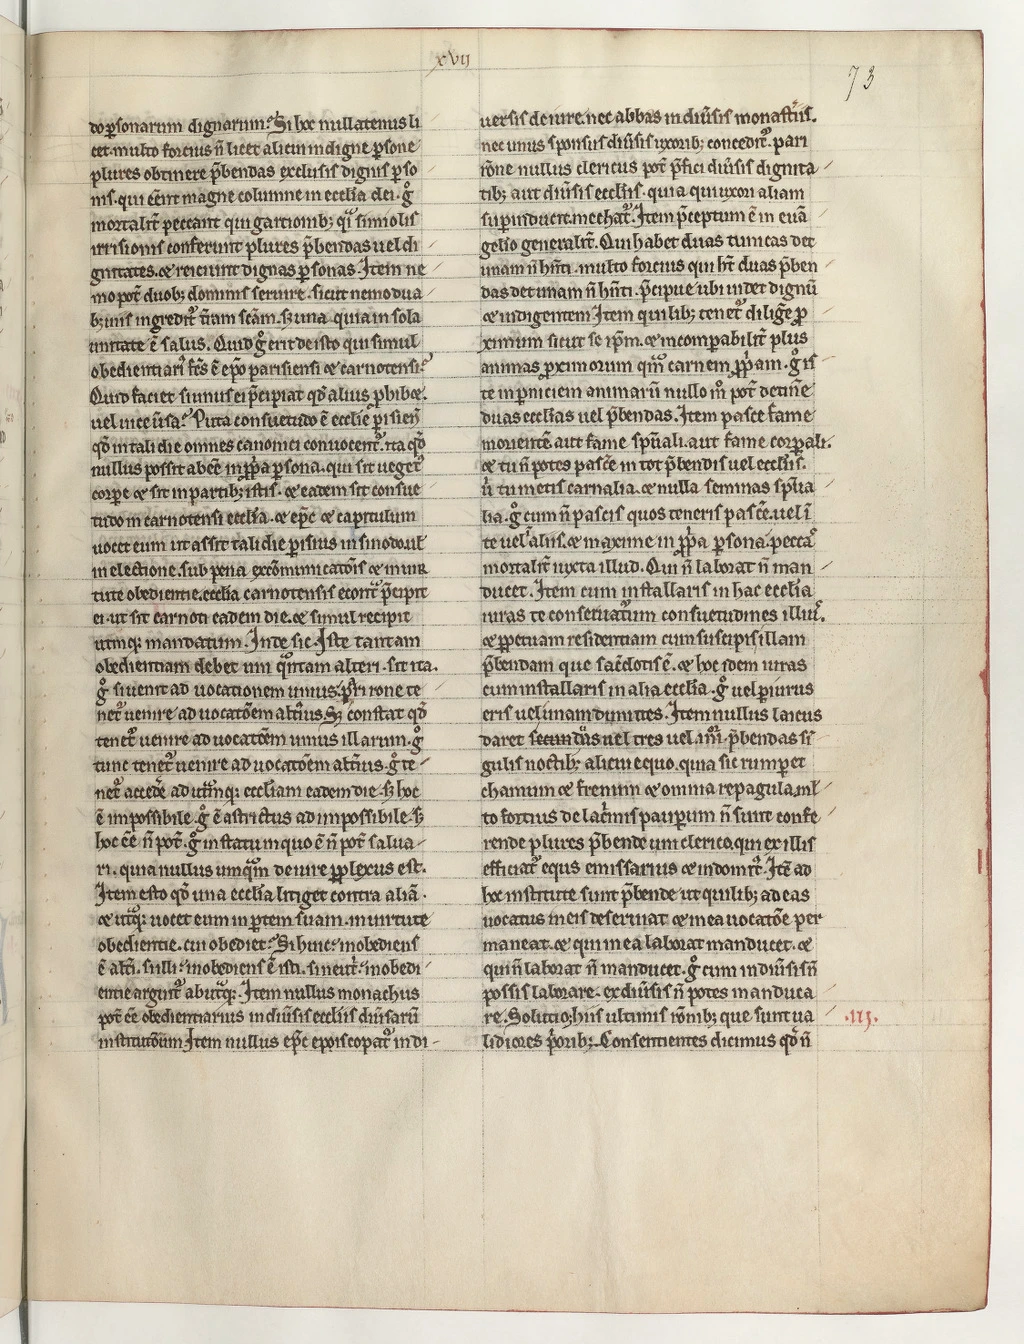 xvij
73
do ꝑsonarum dignarum. Si hoc nullatenus li
cet. multo forcius ñ licet alicui indigne ꝑsone
plures obtinere p̄bendas exclusis dignis ꝑso
nis. qui eēnt magne columne in ecclia dei. gͦ
mortalit̉ peccant qui garcionib; ql̓ simiolis
irrisionis conferunt plures p̄bendas uel di
gnitates. ⁊ reiciunt dignas ꝑsonas. Item ne
mo pot̓ duob; dominis seruire. sicut nemo dua
b; uiis ingredit̉ t̓ram sc̄am. s; una. quia in sola
unitate ē salus. Quid gͦ erit de isto qui simul
obediential̓ fr̄s ē ep̄o parisiensi ⁊ carnotensi.
Quid faciet si unus ei p̄cipiat qd̓ alius ꝓhibet.
uel ince ūsa. Puta consuetudo ē ecclie ꝑisien̄
qd̓ in tali die omnes canonici conuocent̉. ita qd̓
nullus possit abēe in ꝓp̓a ꝑsona. qui sit ueget̉
corꝑe ⁊ sit in partib; istis. ⁊ eadem sit consue
tudo in carnotensi ecclia. ⁊ ep̄c ⁊ capitulum
uocet eum ut assit tali die ꝑisius in sinodo. ul̓
in electione. sub pena excōmunicatōis ⁊ in uir
tute obedientie. ecclia carnotensis econt̉ p̄cipit
ei. ut sit carnoti eadem die. ⁊ simul recipit
utrūq; mandatum. Inde sic. Iste tantam
obedientiam debet uni qͣntam alteri. sit ita.
gͦ si uenit ad uocationem unius. pari rōne te
net̉ uenire ad uocatōem alt̓ius. S; constat qd̓
tenet̉ uenire ad uocatōem unius illarum. gͦ
tunc tenet̉ uenire ad uocatōem alt̓ius. gͦ te
net̉ accedē ad ut̉mq; eccliam eadem die. s; hoc
ē impossibile. gͦ ē astrictus ad impossibile. s;
hoc eē ñ pot̓. gͦ in statum quo ē ñ pot̓ salua
ri. quia nullus umqͣm de iure ꝑplexus est.
Item esto qd̓ una ecclia litiget contra aliā.
⁊ ut̉q; uocet eum in ꝑtem suam. in uirtute
obedientie. cui obediet. Si huic. inobediens
ē alt̓i. si illi. inobediens ē isti. si neut̉. inobedi
entie arguit̉ ab ut̉q;. Item nullus monachus
pot̓ eē obedientiarius in diūsis ecclijs diūsarū
institutōum. Item nullus ep̄c episcopat̉ in di
uersis de iure. nec abbas in diūsis monast̓iis.
nec unus sponsus diūsis uxorib; concedit̉. pari
rōne nullus clericus pot̓ p̄fici diūsis dignita
tib; aut diūsis eccliis. quia qui uxori aliam
suꝑinducit. mechat̉. Item p̄ceptum ē in euā
gelio generalit̉. Qui habet duas tunicas det
unam ñ hn̄ti. multo forcius qui ht̓ duas p̄ben
das det unam ñ hn̄ti. p̄cipue ubi uidet dignū
⁊ indigentem. Item quilib; tenet̉ diligē ꝓ
ximum sicut se ip̄m. ⁊ incomꝑabilit̉ plus
animas ꝓximorum qͣm carnem ꝓp̓am. gͦ is
te in ꝑniciem animarū nullo mͦ pot̓ detinē
duas ecclias uel p̄bendas. Item pasce fame
morientē. aut fame spūali. aut fame corꝑali.
⁊ tu ñ potes pascē in tot p̄bendis uel ecclis.
ñ tu metis carnalia. ⁊ nulla seminas sp̄ua
lia. gͦ cum ñ pascis quos teneris pascē. uel ī
te uel aliis. ⁊ maxime in ꝓp̓a ꝑsona. peccas
mortalit̉ iuxta illud. Qui ñ laborat ñ man
ducet. Item cum installaris in hac ecclia
iuras te conseruaturum consuetudines illius.
⁊ ꝑpetuam residentiam cum suscipis illam
p̄bendam que sac̉dotis ē. ⁊ hoc idem iuras
cum installaris in alia ecclia. gͦ uel ꝑiurus
eris uel unam dimittes. Item nullus laicus
daret secundas uel tres uel .iiii. p̄bendas si
gulis noctib; alicui equo. quia sic rumperet
chamum ⁊ frenum ⁊ omnia repagula. ml̓
to forcius de lac̓mis pauꝑum ñ sunt confe
rende plures p̄bende uni clerico. qui ex illis
efficiat̉ equs emissarius ⁊ indomit̉. Itē ad
hoc institute sunt p̄bende ut quilib; ad eas
uocatus in eis deseruiat ⁊ in ea uocatōe per
maneat. ⁊ qui in ea laborat manducet. ⁊
qui ñ laborat ñ manducet. gͦ cum in diūsis ñ
possis laborare. ex diūsis ñ potes manduca
re. Solutio. hiis ultimis rōnib; que sunt ua .iij.
lidiores p̓orib;. Consentientes dicimus qd̓ ñ